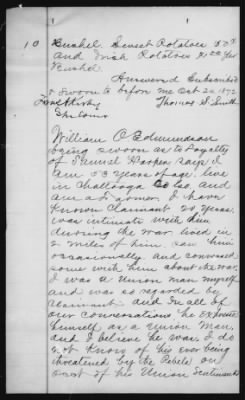 10 Bushel. Sweet Potatoes 50¢
and Irish Potatoes $1.00 per
Bushel.
Answered Subscribed
& Sworn to before me Oct 24 1872
Thomas S. Smith
William O Edmundson
being sworn as to loyalty
of Samuel Hooper says I
am 53 years of age. live
in Chattooga Co Ga. and
am a Farmer. I have
Known Claimant 20 years.
was intimate with him
during the war. lived in
2 miles of him. saw him
occasionally and conversed
some with him about the war.
I was a Union man myself
and was so regarded by
Claimant and In all of
our conversations he Expressed
himself as a Union Man.
and I believe he was. I do
not Know of his ever being
threatened by the Rebels on
acct of his Union Sentiments